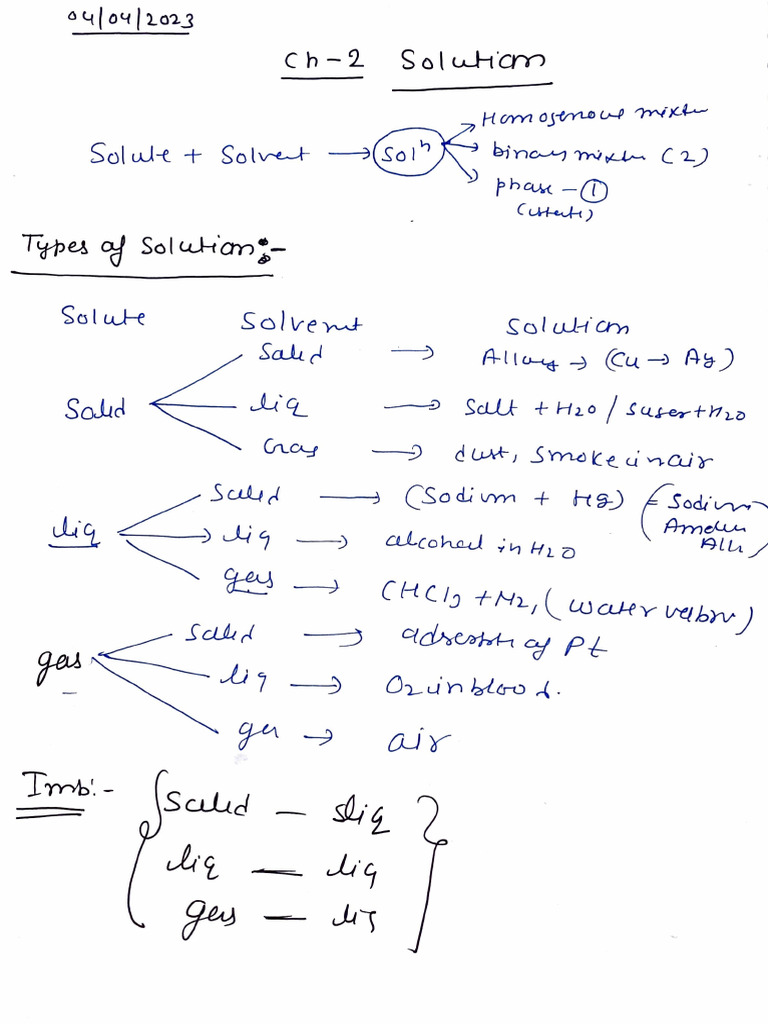 04/04/2023
Ch-2 Solution
Solute + Solvent → Solⁿ
Homogenous mixture
binary mixture (2)
phase - ①
(state)
Types of Solution:-
Solute Solvent Solution
Solid
Solid → Alloy → (Cu → Ag)
liq → Salt + H2O / Suger + H2O
Gas → dust, smoke in air
liq
Solid → (Sodium + Hg) = (Sodium
liq → alcohol in H2O
gas → CHCl3 + N2, (water
gas
Solid → of Pt
liq → O2 in blood.
gas → air
Imp:-
Solid - liq
liq - liq
gas - liq